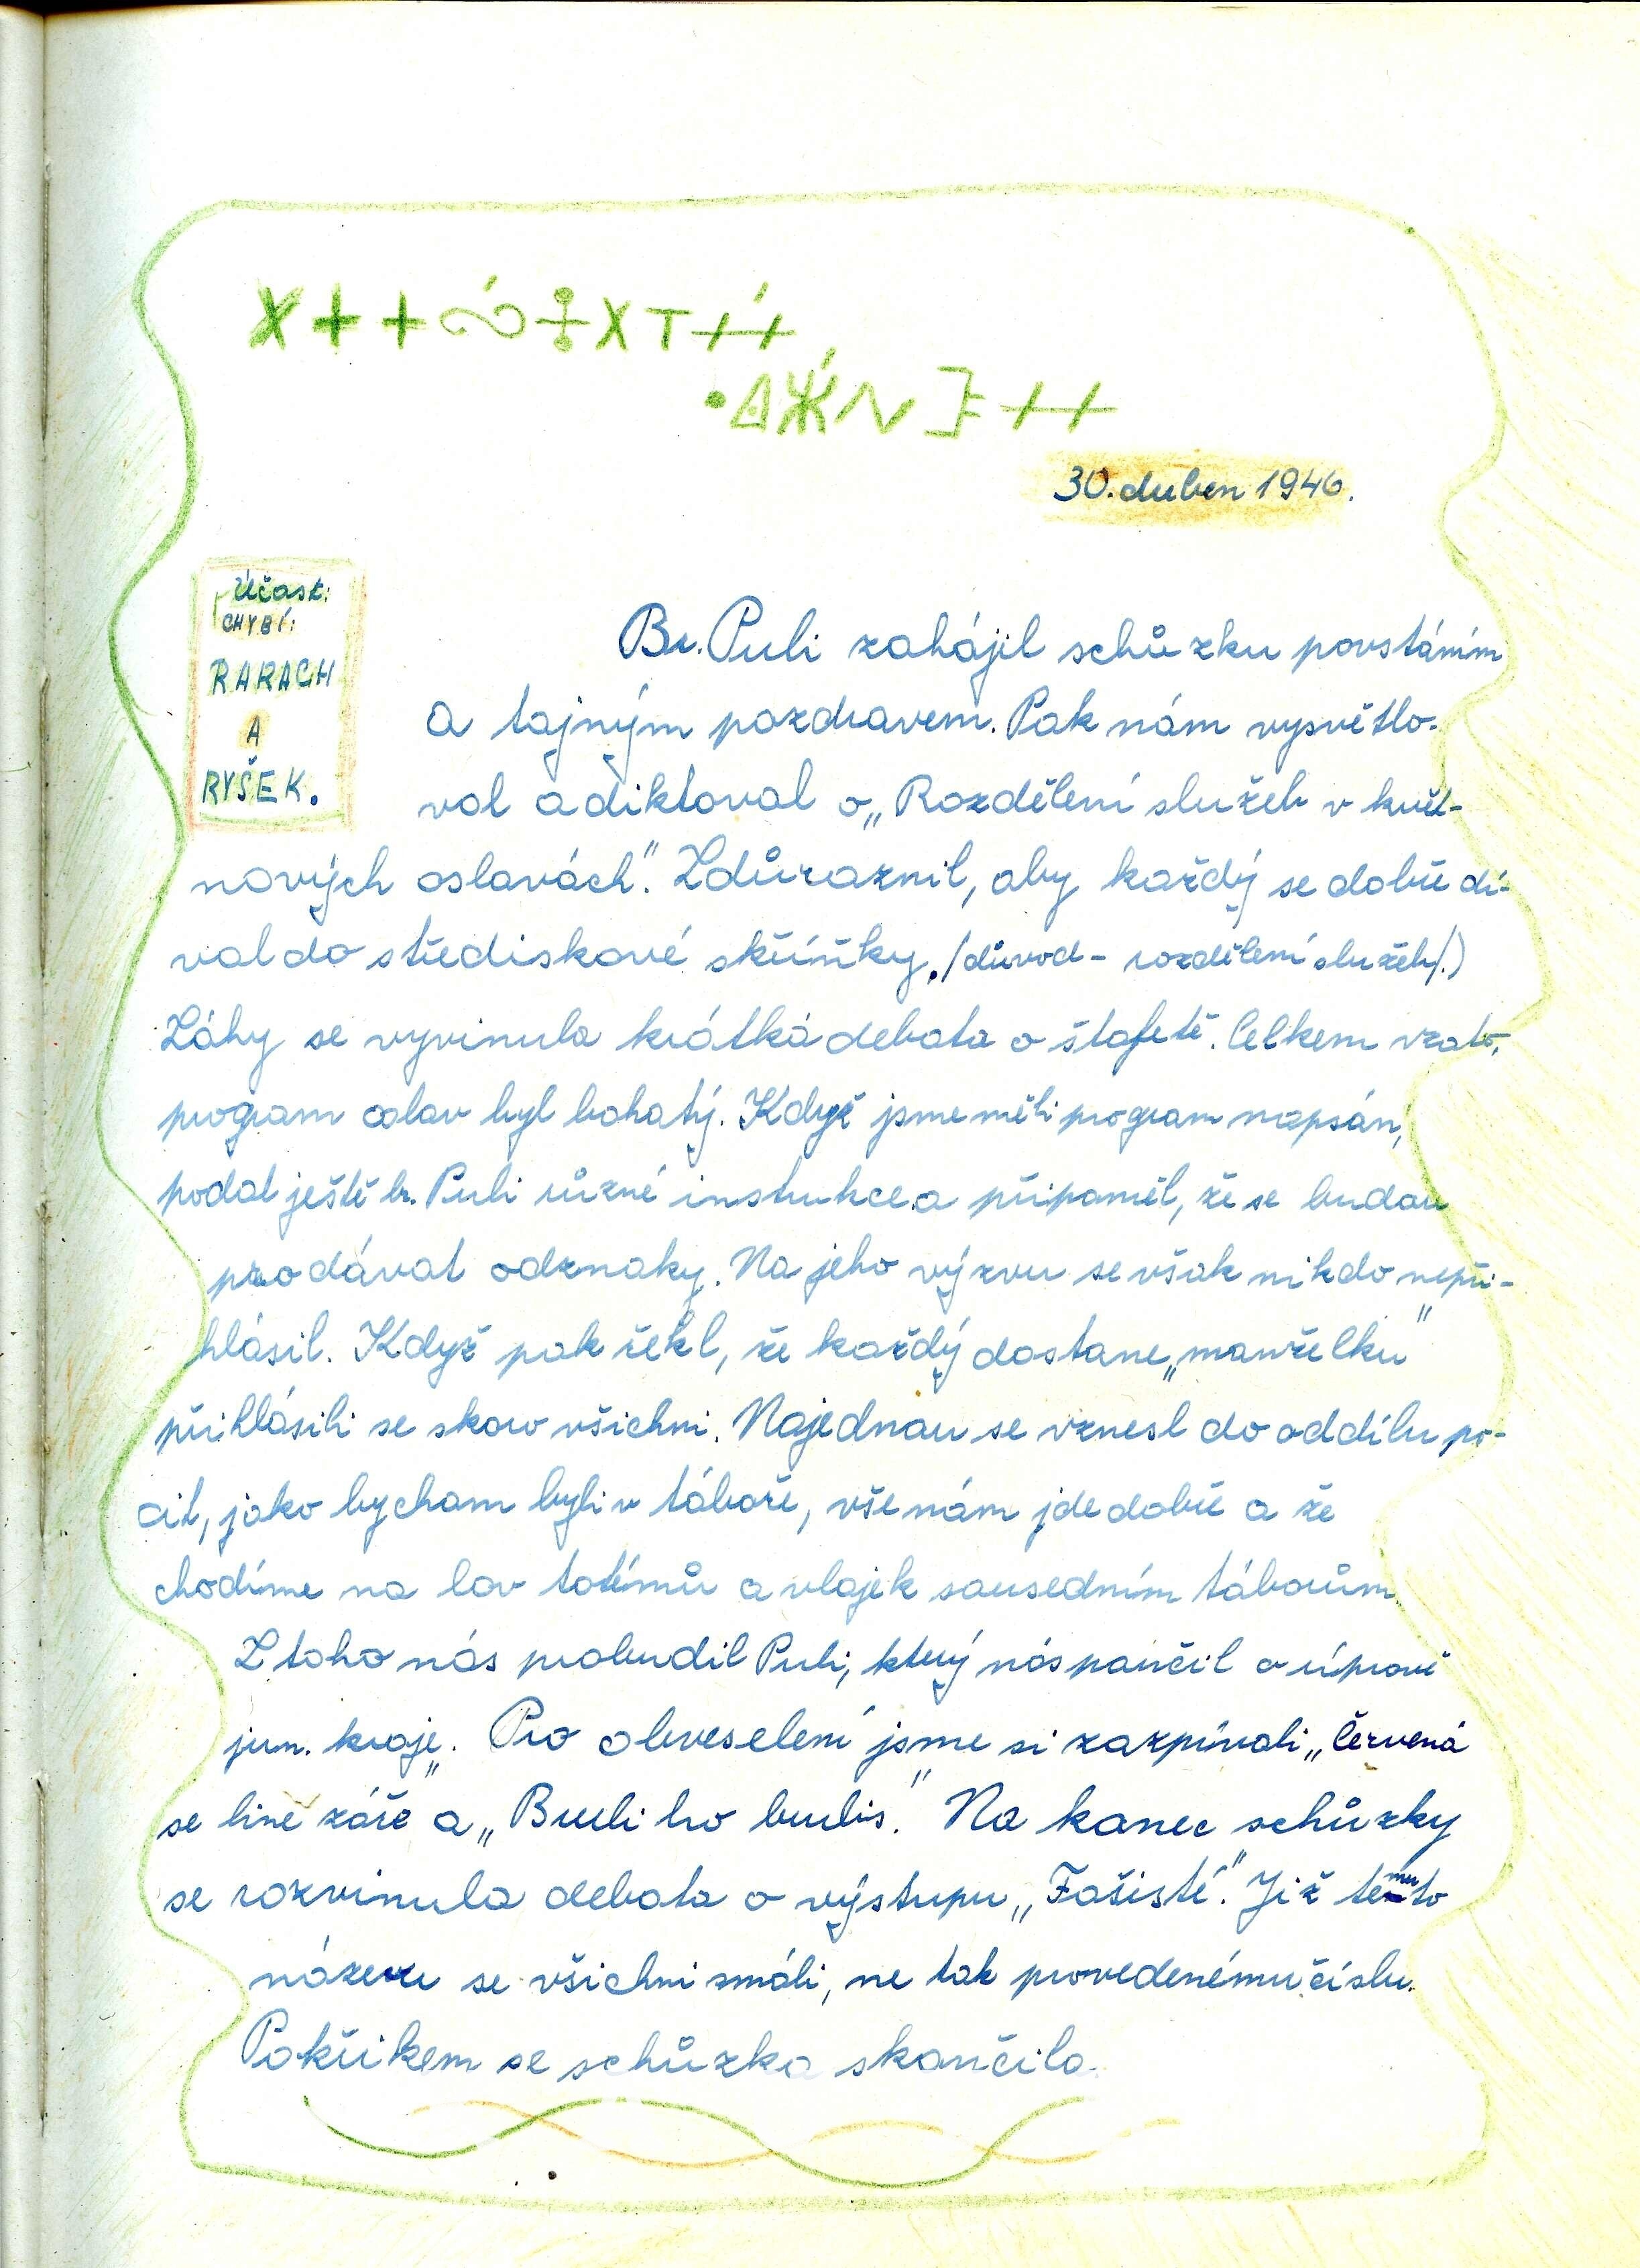 30. duben 1946.
Účast:
CHYBÍ:
RARACH
A
RYŠEK.
Br. Puli zahájil schůzku povstáním
a tajným pozdravem. Pak nám vysvětlo-
val a diktoval o „Rozdělení služeb v květ-
nových oslavách". Zdůraznil, aby každý se dobře dí-
val do střediskové skříňky. /důvod - rozdělení služeb/.)
Záhy se vyvinula krátká debata o štafetě. Celkem vzato,
program oslav byl bohatý. Když jsme měli program napsán,
podal ještě br. Puli různé instrukce a připoměl, že se budou
prodávat odznaky. Na jeho výzvu se však nikdo nepři-
hlásil. Když pak řekl, že každý dostane „manželku"
přihlásili se skoro všichni. Najednou se vznesl do oddílu po-
cit, jako bychom byli v táboře, vše nám jde dobře a že
chodíme na lov totémů a vlajek sousedním táborům.
Z toho nás probudil Puli, který nás poučil o úpravě
jun. kroje. Pro obveselení jsme si zazpívali „Červená
se line záře" a „Budiho budis". Na konec schůzky
se rozvinula debata o výstupu „Fašisté". Již tému to
názvu se všichni smáli, ne tak provedenému číslu.
Pokřikem se schůzka skončila.